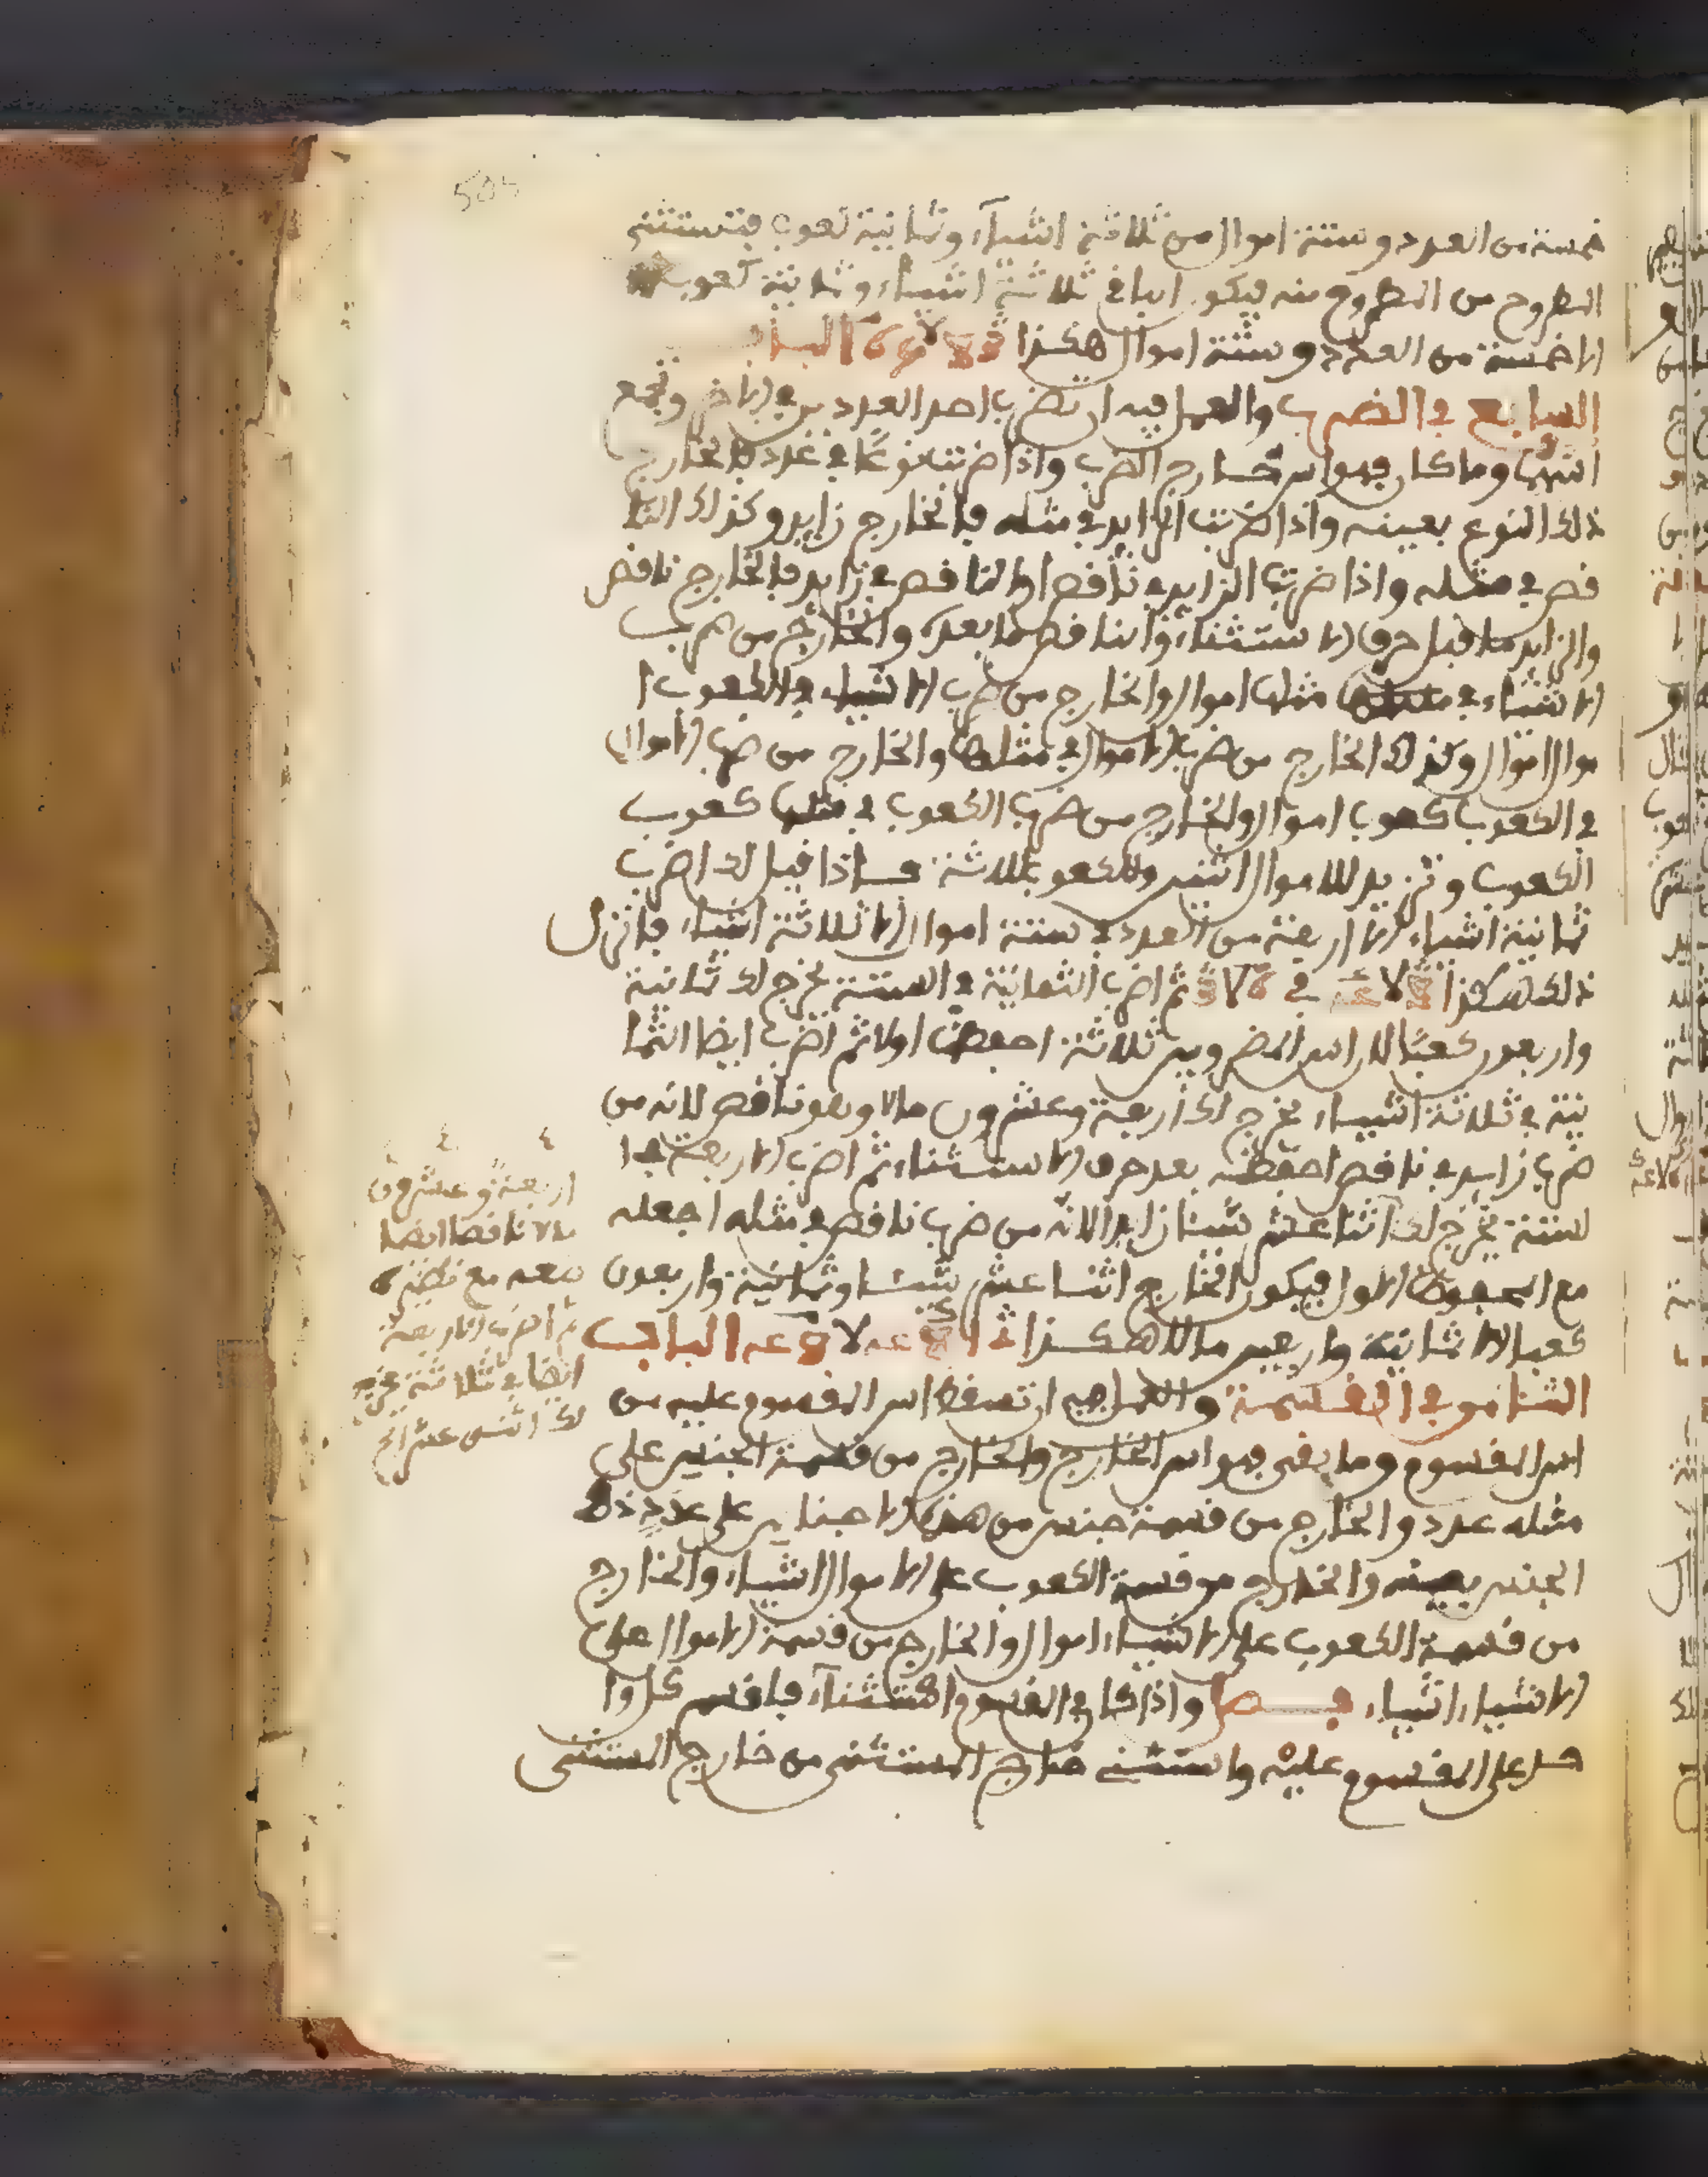 خمسة من العدد وستة اموال من ثلاثة اشياء وثمانية كعوب فتستثنى
المطروح من المطروح منه فيكون الباقي ثلاثة اشياء وثمانية كعوب
الا خمسة من العدد وستة اموال هكذا الباب
السابع في الضرب والعمل فيه ان تضرب احد العددين في الاخر وتجمع
اسيهما وما كان فهو اس خارج الضرب واذا ضربت نوعا في عدد فالخارج
ذلك النوع بعينه واذا ضربت الزايد في مثله فالخارج زايد وكذلك النا
قص في مثله واذا ضربت الزايد في ناقص او الناقص في زايد فالخارج ناقص
والزايد ما قبل حرف الاستثناء والناقص ما بعده والخارج من ضرب
الاشياء في مثلها اموال والخارج من ضرب الاشياء في الكعوب ا
موال اموال وكذلك الخارج من ضرب الاموال في مثلها والخارج من ضرب الاموال
في الكعوب كعوب اموال والخارج من ضرب الكعوب في مثلها كعوب
الكعوب وتزيد للاموال اثنين وللكعوب ثلاثة فاذا قيل لك اضرب
ثمانية اشياء الا اربعة من العدد في ستة اموال الا ثلاثة اشياء فانزل
ذلك هكذا في ثم اضرب الثمانية في الستة يخرج لك ثمانية
واربعون كعبا لان اس المضروبين ثلاثة احفظها اولا ثم اضرب ايضا الثما
نية في ثلاثة اشياء يخرج لك اربعة وعشرون مالا وهو ناقص لانه من
ضرب زايد في ناقص احفظه بعد حرف الاستثناء ثم اضرب الاربعة في ا
لستة يخرج لك اثنا عشر شيئا زايدا لانه من ضرب ناقص في مثله اجعله
مع المحفوظ الاول فيكون الخارج اثنا عشر شيئا وثمانية واربعون
كعبا الا ثمانية واربعين مالا هكذا الباب
الثامن في القسمة والعمل فيه ان تسقط اس المقسوم عليه من
اس المقسوم وما بقي فهو اس الخارج والخارج من قسمة الجنس على
مثله عدد والخارج من قسمة جنس من هذه الاجناس على عدد ذلك
الجنس بعينه والخارج من قسمة الكعوب على الاموال اشياء والخارج
من قسمة الكعوب على الاشياء اموال والخارج من قسمة الاموال على
الاشياء اشياء فصل واذا كان في المقسوم استثناء فاقسم كل وا
حد على المقسوم عليه واستثنى خارج المستثنى من خارج المستثنى
اربعة وعشرون
مالا ناقصا ايضا
ضعه مع نظيره
ثم اضرب الاربعة
ايضا في ثلاثة يخرج
لك اثنى عشر الخ